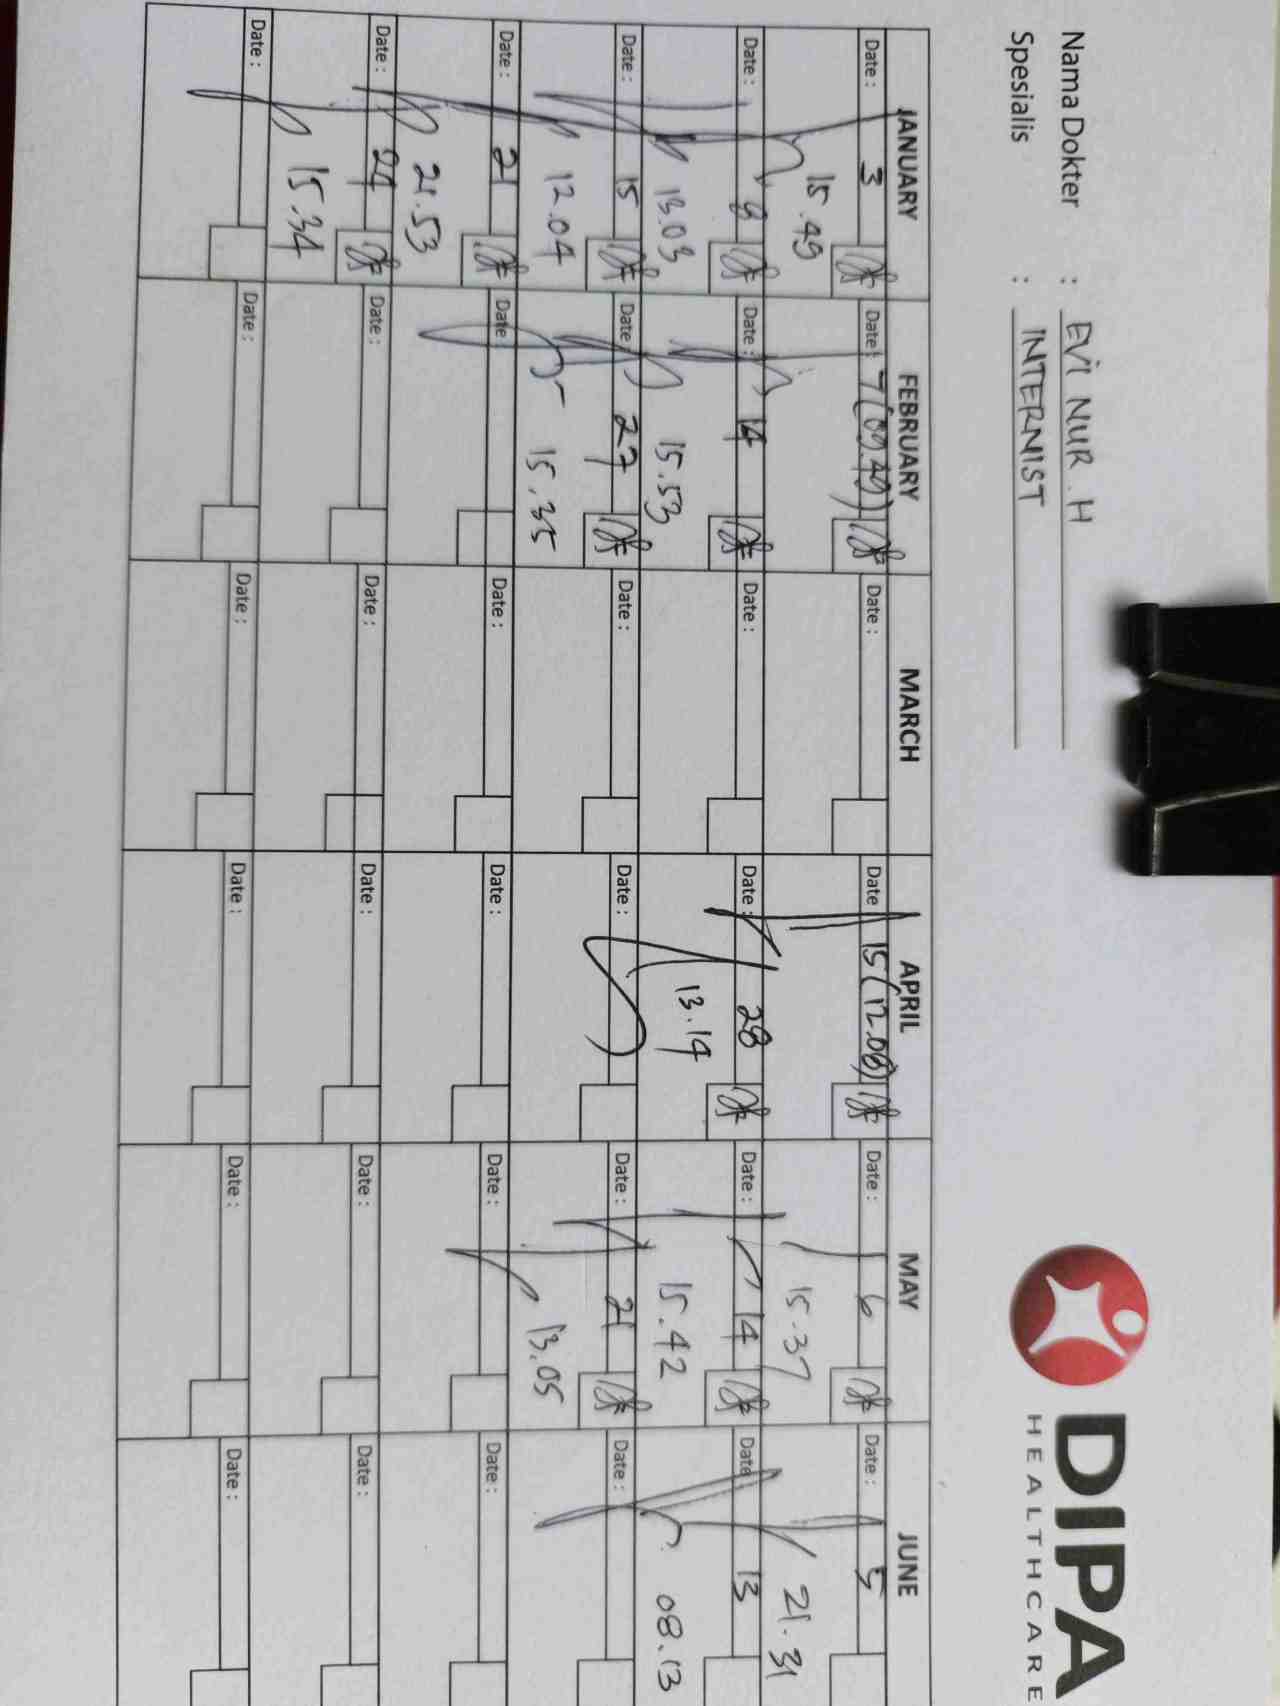 Nama Dokter : EVI NUR . H
Spesialis : INTERNIST
DIPA
HEALTHCARE
JANUARY FEBRUARY MARCH APRIL MAY JUNE
Date : 3 Date : 7 (09.49) Date : Date 15 (12.08) Date : 6 Date : 5
15.49 15.37 21.31
Date : 8 Date : 14 Date : Date : 28 Date : 14 Date 13
13.03 15.53 13.14 15.42 08.13
Date : 15 Date : 27 Date : Date : Date : 21 Date :
12.04 15.35 13.05
Date : 21 Date Date : Date : Date : Date :
21.53
Date : 24 Date : Date : Date : Date : Date :
15.34
Date : Date : Date : Date : Date : Date :